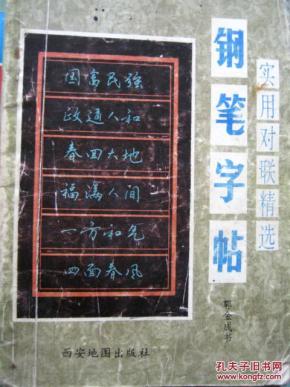 实用对联精选
钢笔字帖
郭金成书
国富民强
政通人和
春回大地
福满人间
一方和气
四面春风
西安地图出版社
孔夫子旧书网